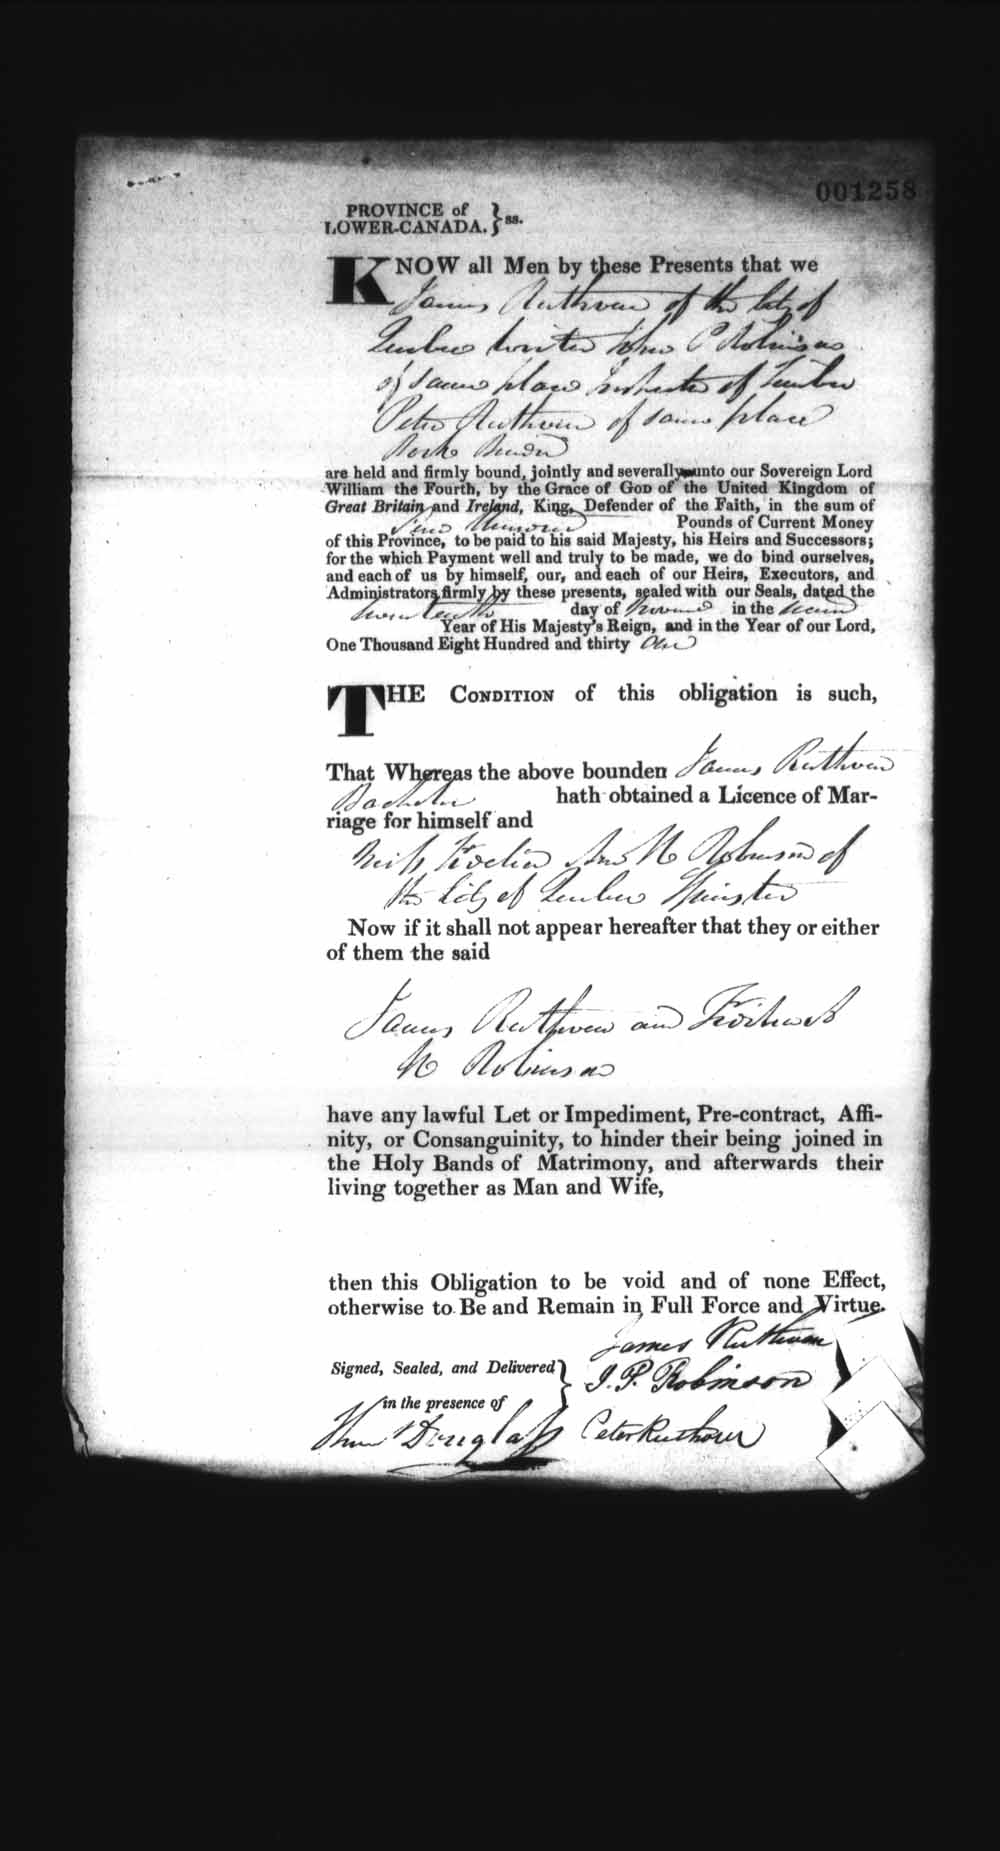 001258
PROVINCE of
LOWER-CANADA. } ss.
KNOW all Men by these Presents that we
James Ruthven of the City of
Quebec John P Robinson
of same place of
Peter Ruthven of same place
Book Binder
are held and firmly bound, jointly and severally unto our Sovereign Lord
William the Fourth, by the Grace of GOD of the United Kingdom of
Great Britain and Ireland, King, Defender of the Faith, in the sum of
Pounds of Current Money
of this Province, to be paid to his said Majesty, his Heirs and Successors;
for the which Payment well and truly to be made, we do bind ourselves,
and each of us by himself, our, and each of our Heirs, Executors, and
Administrators firmly by these presents, sealed with our Seals, dated the
day of in the second
Year of His Majesty's Reign, and in the Year of our Lord,
One Thousand Eight Hundred and thirty One
THE CONDITION of this obligation is such,
That Whereas the above bounden James Ruthven
Bachelor hath obtained a Licence of Mar-
riage for himself and
Miss Ann M Robinson of
the City of Quebec Spinster
Now if it shall not appear hereafter that they or either
of them the said
James Ruthven and
M Robinson
have any lawful Let or Impediment, Pre-contract, Affi-
nity, or Consanguinity, to hinder their being joined in
the Holy Bands of Matrimony, and afterwards their
living together as Man and Wife,
then this Obligation to be void and of none Effect,
otherwise to Be and Remain in Full Force and Virtue.
James Ruthven
Signed, Sealed, and Delivered }
J. P. Robinson
in the presence of
Douglass Peter Ruthven